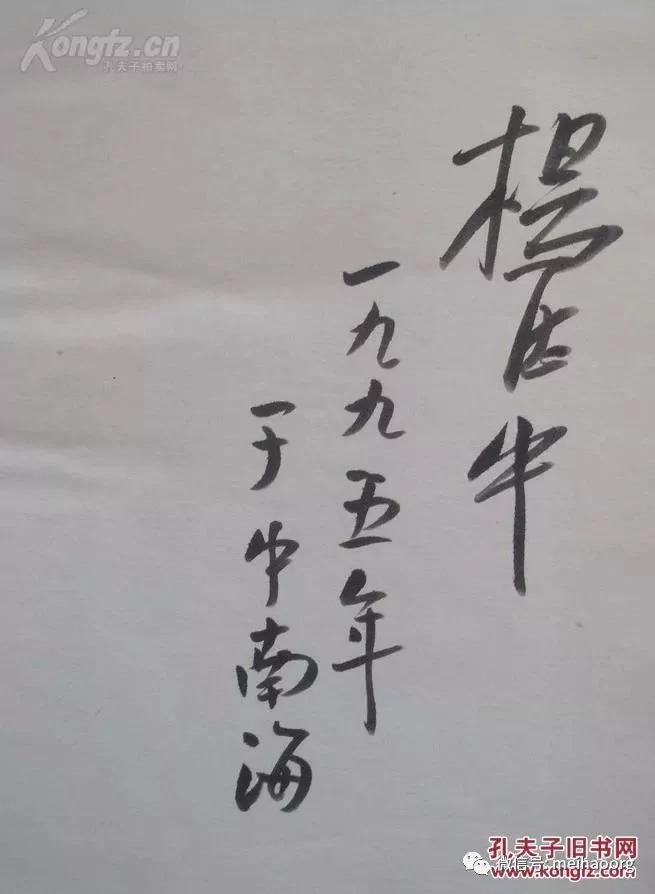 Kongfz.cn
孔夫子拍卖网
楊德中
一九九五年
于中南海
孔夫子旧书网
www.kongfz.com
微信号: meihaoorg